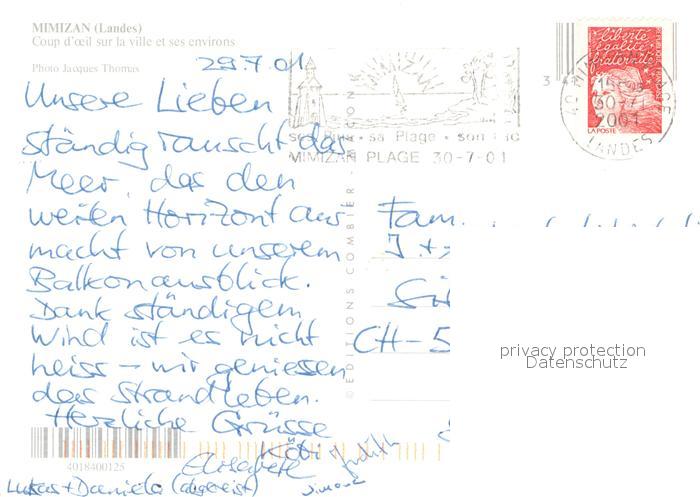 MIMIZAN (Landes)
Coup d'œil sur la ville et ses environs
Photo Jacques Thomas
29.7.01
Unsere Lieben
ständig rauscht das
Meer, das den
weiten Horizont aus
macht von unserem
Balkonausblick.
Dank ständigem
Wind ist es nicht
heiss – wir geniessen
das Strandleben.
Herzliche Grüsse
Köbi Judith
Elisabeth
Simone
Lukas + Daniela (abgereist)
4018400125
© EDITIONS COMBIER - MACON
MIMIZAN
sa Plage • son
MIMIZAN PLAGE 30-7-01
3
liberté
égalité
fraternité
LA POSTE
30-7
2001
LANDES
Fam.
CH-5
privacy protection
Datenschutz